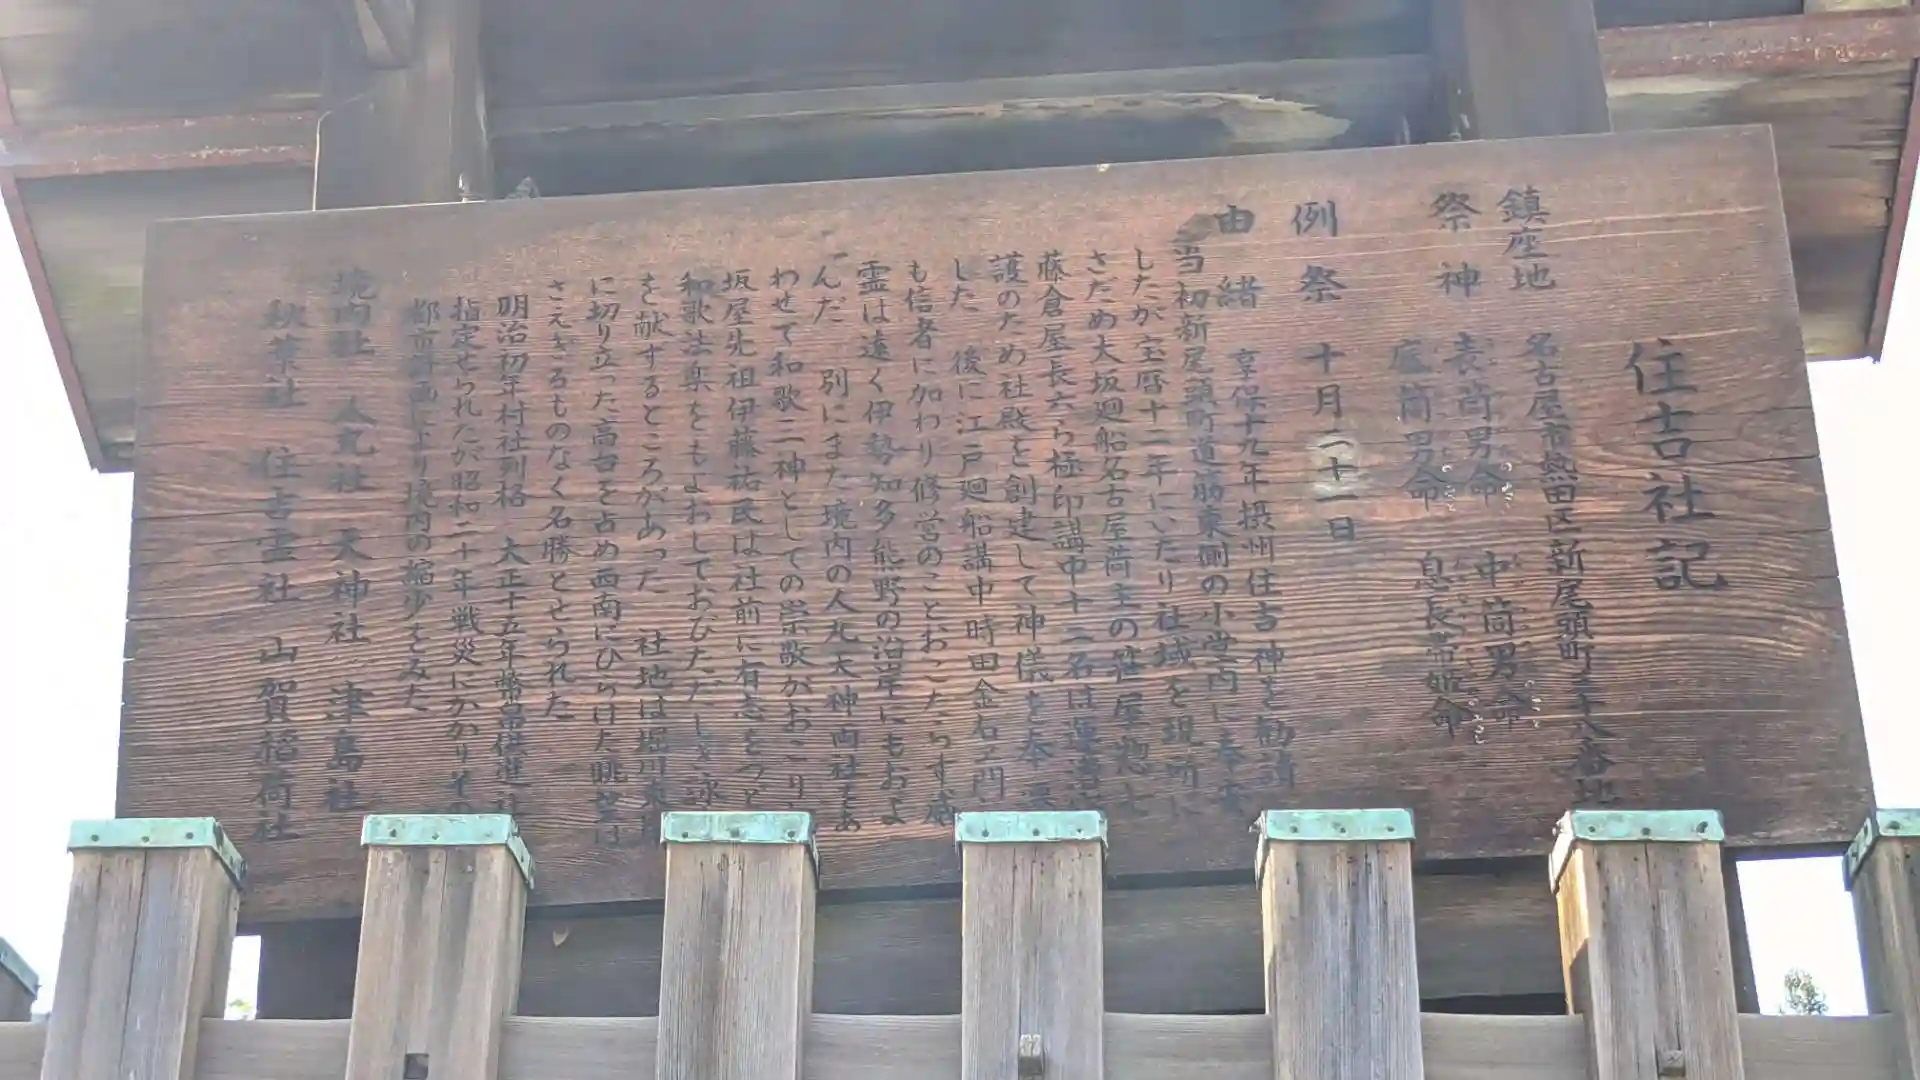 住吉社記
鎮座地 名古屋市熱田区新尾頭町
祭神 表筒男命 中筒男命
底筒男命 息長帯姫命
例祭 十月二十一日
由緒 享保十九年摂州住吉神を勧請
当初新尾頭町道筋東側の小堂内に奉安
したが宝暦十二年にいたり社域を現所に
さだめ大坂廻船名古屋荷主の笹屋惣七
藤倉屋長六ら極印講中十二名は運漕
護のため社殿を創建して神儀を奉
した 後に江戸廻船講中時田金右エ門
も信者に加わり修営のことおこたらず威
霊は遠く伊勢知多熊野の沿岸にもおよ
んだ 別にまた境内の人丸天神両社をあ
わせて和歌二神としての崇敬がおこり
坂屋先祖伊藤祐民は社前に有志をつど
和歌法楽をもよおしておびただしき詠
を献ずるところがあった 社地は堀川東
に切り立った高台を占め西南にひらけた眺望は
さえぎるものなく名勝とせられた
明治初年村社列格 大正十五年幣帛供進
指定せられたが昭和二十年戦災にかかりその
都市計画により境内の縮少をみた
境内社 人丸社 天神社 津島社
秋葉社 住吉霊社 山賀稲荷社